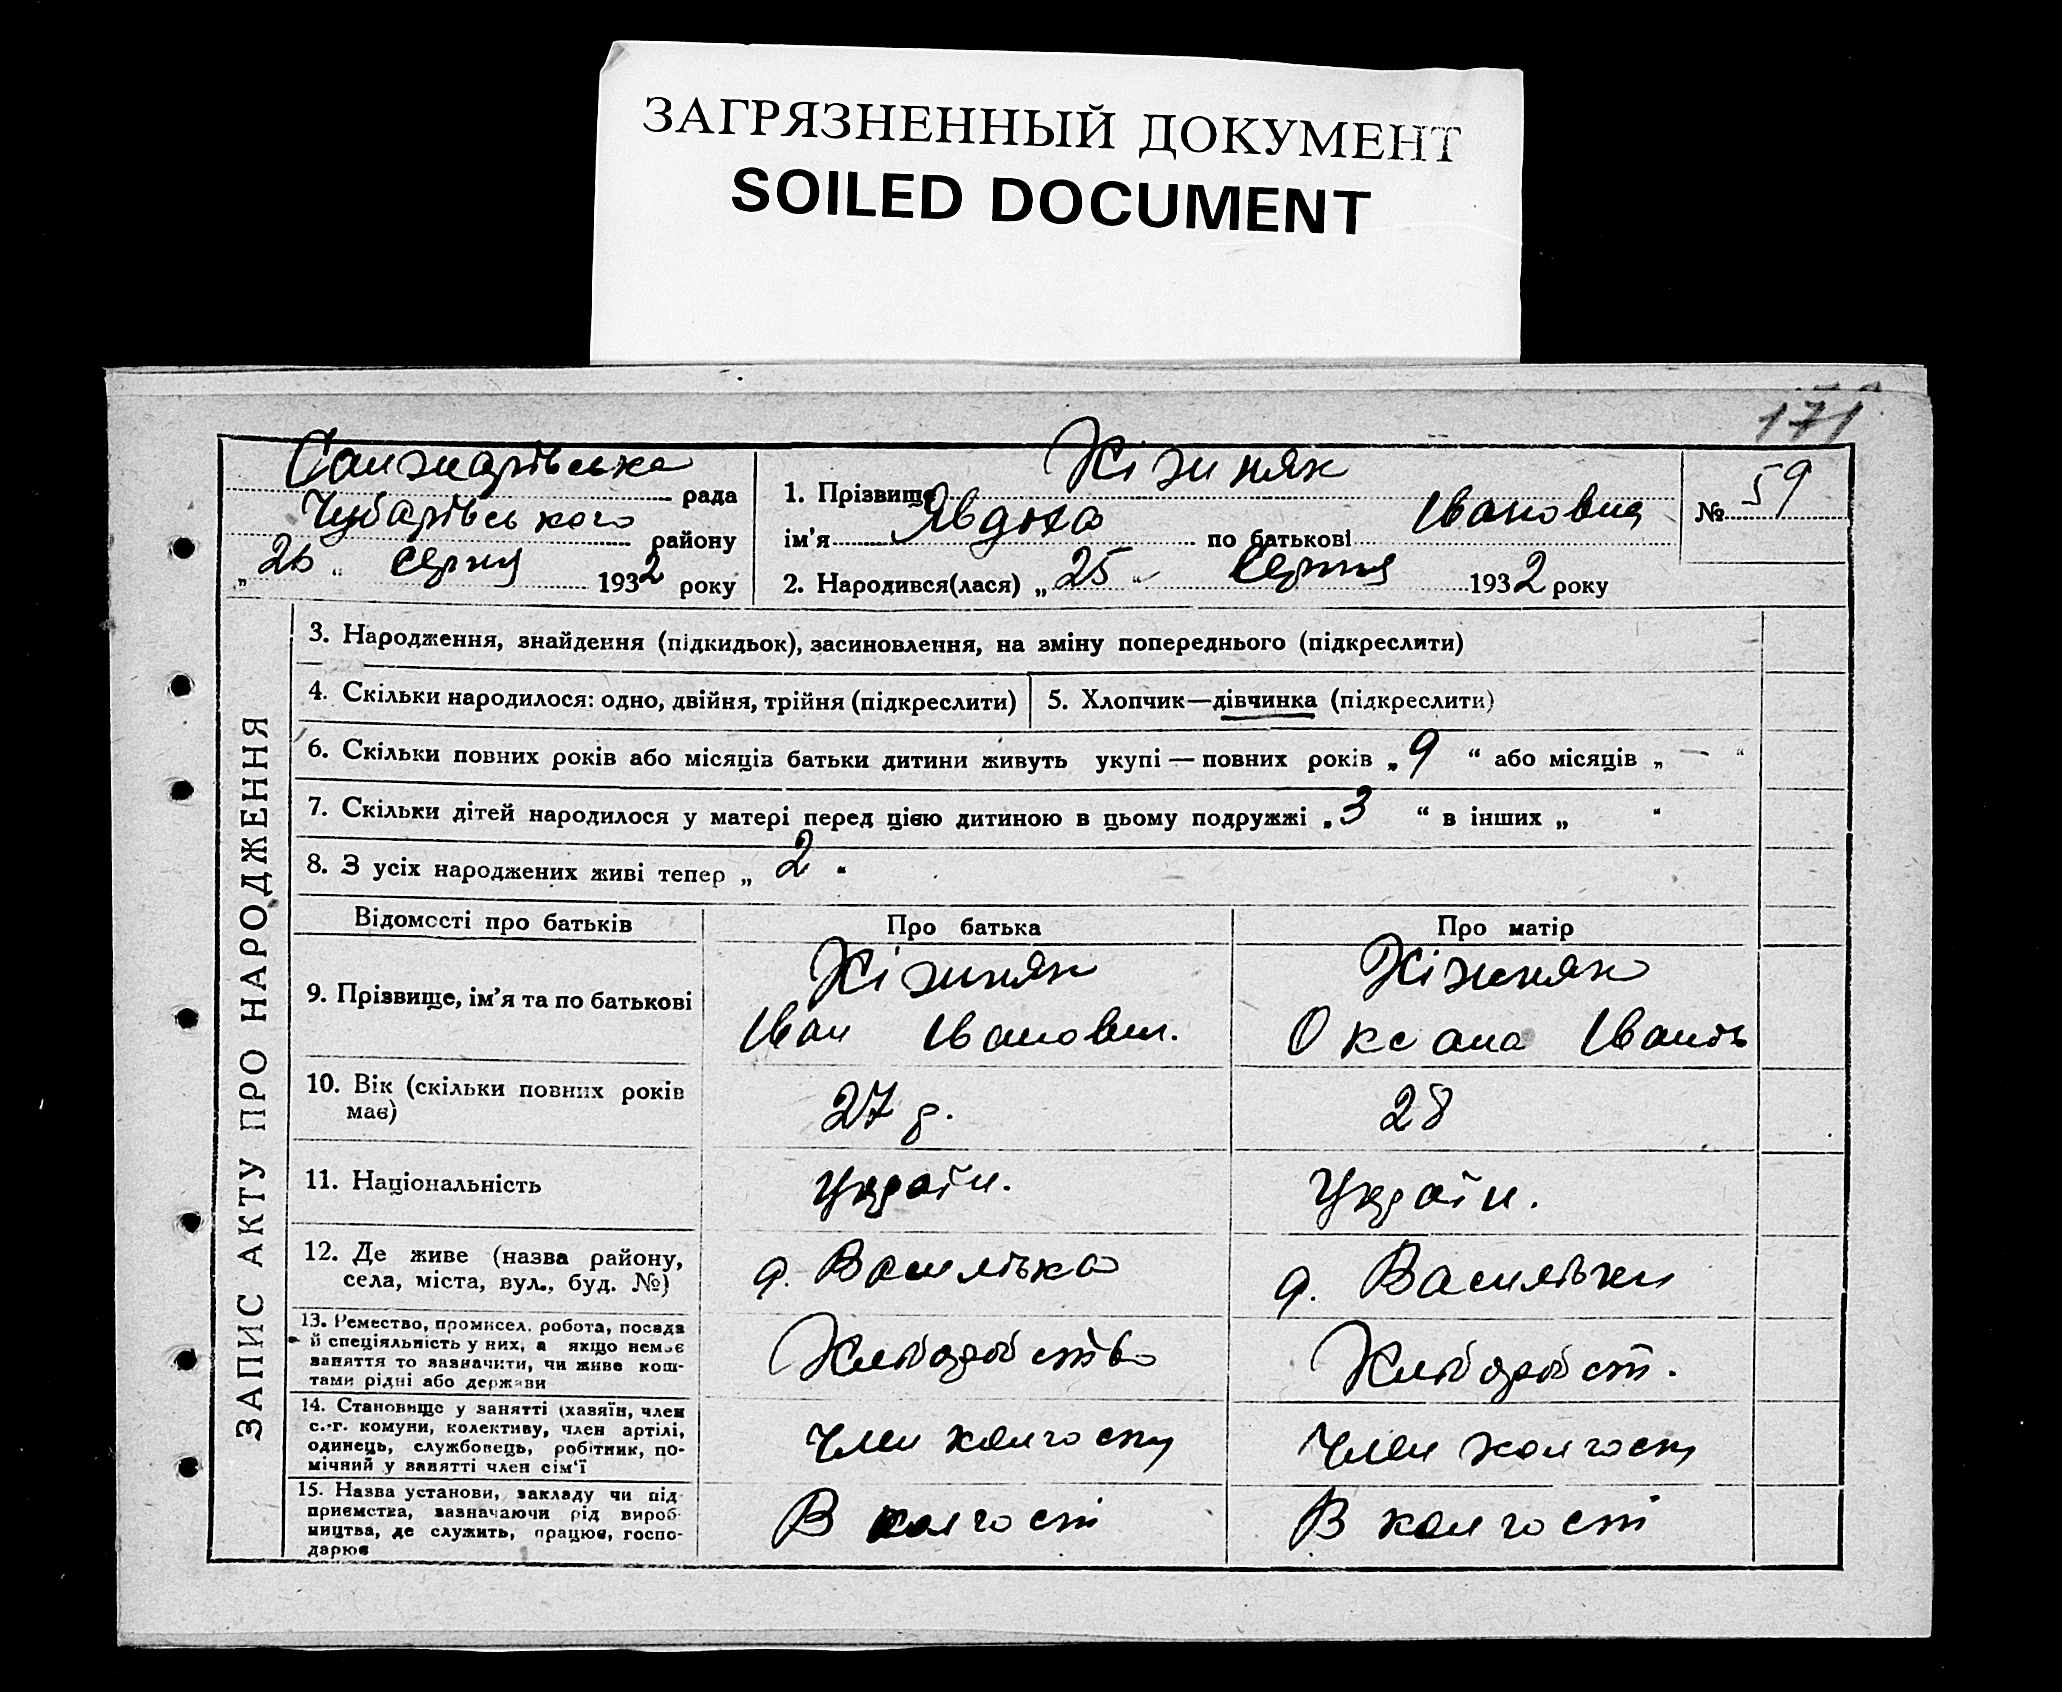 ЗАГРЯЗНЕННЫЙ ДОКУМЕНТ
SOILED DOCUMENT
171
Санжарівська рада
Чубарівського району
„26“ серпня 1932 року
1. Прізвище Хіжняк
ім'я Явдоха по батькові Івановна
№ 59
2. Народився(лася) „25“ серпня 1932 року
ЗАПИС АКТУ ПРО НАРОДЖЕННЯ
3. Народження, знайдення (підкидьок), засиновлення, на зміну попереднього (підкреслити)
4. Скільки народилося: одно, двійня, трійня (підкреслити)
5. Хлопчик—дівчинка (підкреслити)
6. Скільки повних років або місяців батьки дитини живуть укупі — повних років „9“ або місяців „—“
7. Скільки дітей народилося у матері перед цією дитиною в цьому подружжі „3“ в інших „ “
8. З усіх народжених живі тепер „2“
Відомості про батьків Про батька Про матір
9. Прізвище, ім'я та по батькові
Хіжняк
Іван Іванович.
Хіжняк
Оксана
10. Вік (скільки повних років
має)
27 р.
28
11. Національність
Україн.
Україн.
12. Де живе (назва району,
села, міста, вул., буд. №)
Василівка
Василівки
13. Ремество, промисел, робота, посада
й спеціяльність у них, а якщо немає
заняття то зазначити, чи живе кош-
тами рідні або держави
Хліборобство
Хліборобст.
14. Становище у занятті (хазяїн, член
с.-г. комуни, колективу, член артілі,
одинець, службовець, робітник, по-
мічний у занятті член сім'ї
Член колгоспу
Член колгоспу
15. Назва установи, закладу чи під-
приємства, зазначаючи рід вироб-
ництва, де служить, працює, госпо-
дарює
В колгоспі
В колгоспі